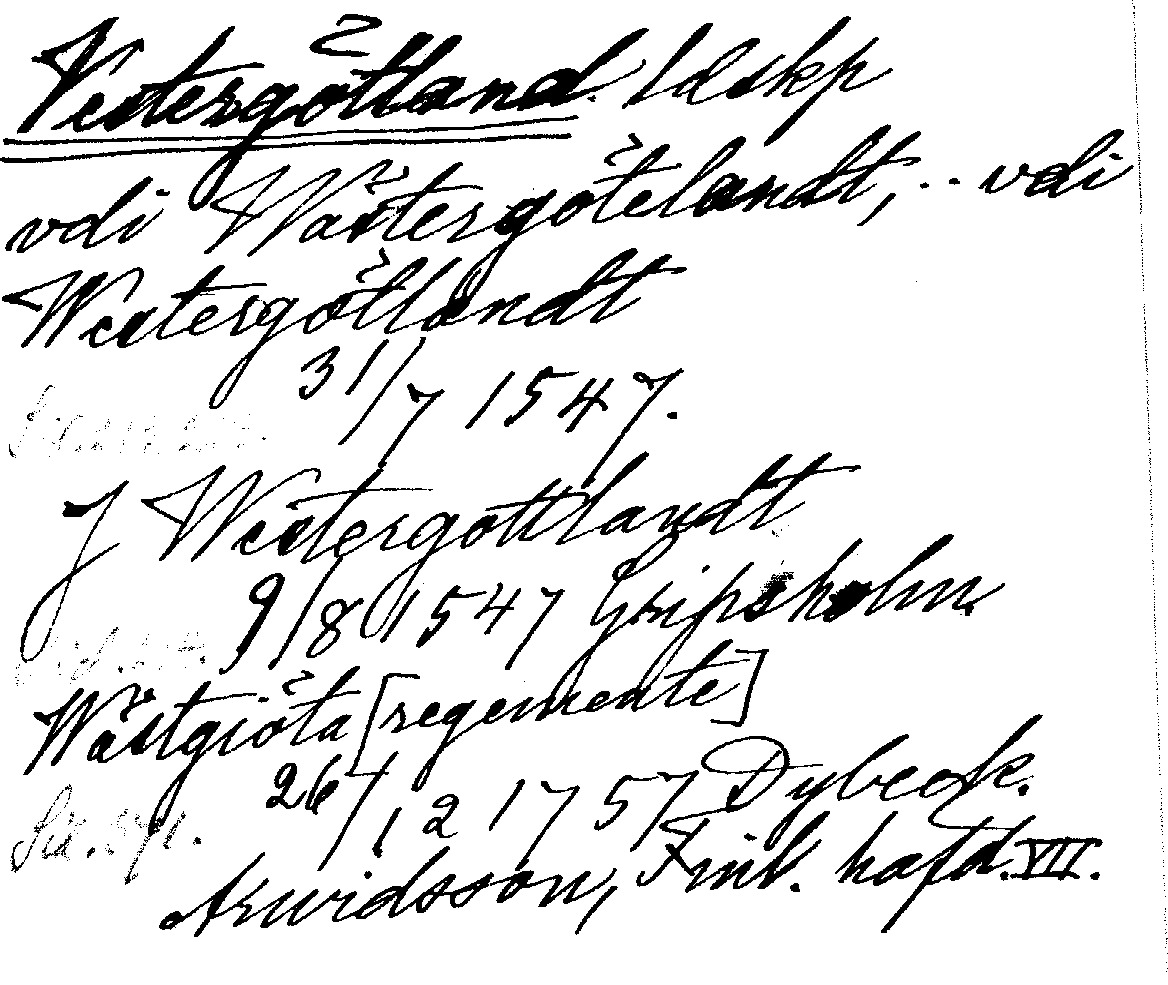 Vestergötland. ldskp
vdi Wästergötelandt, .. vdi
Westergötlandt
31/7 1547.
J Westergottlandt
9/8 1547 Gripsholm.
Wästgiöta [regemente]
26/12 1757 Dybeck.
Sid. 371.
Arwidsson, Finl. häfd. VII.